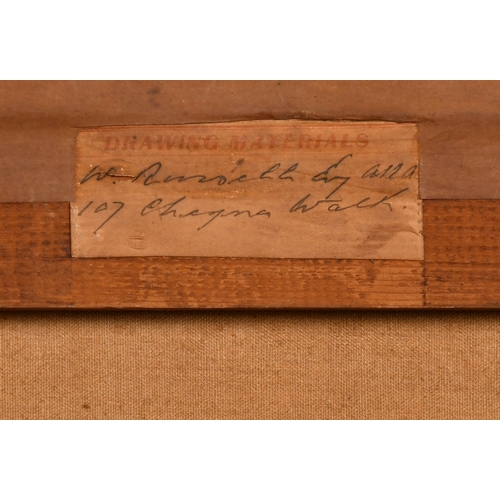 DRAWING MATERIALS
W. Russell Esq ARA
107 Cheyne Walk.